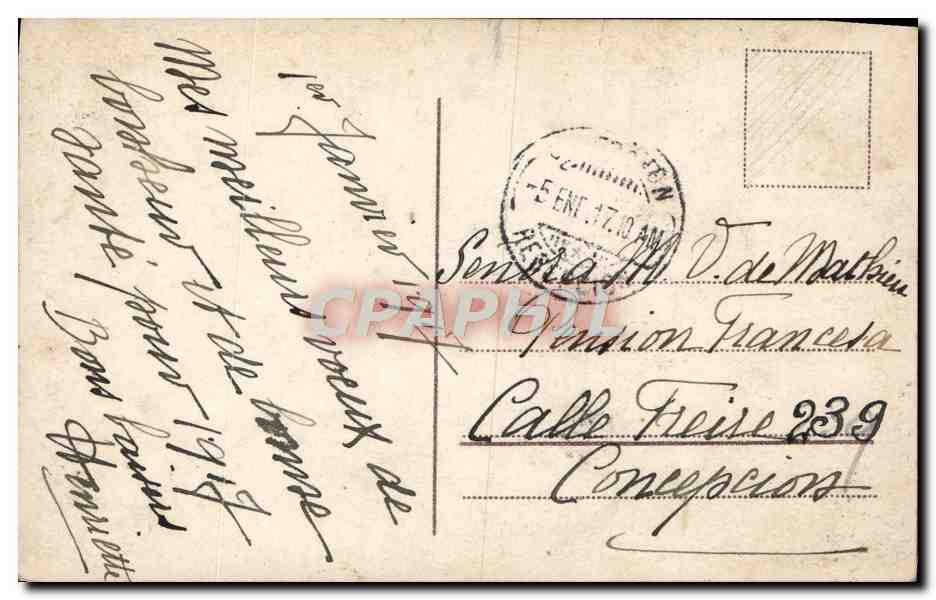 1er Janvier 1917
Mes meilleurs voeux de
bonheur et de bonne
santé pour 1917
Bons baisers
Henriette
CONCEPCION
-5 ENE. 17. 10 AM
Señora M. V. de Mathieu
Pension Francesa
Calle Freire 239
Concepcion
CPAPHIL